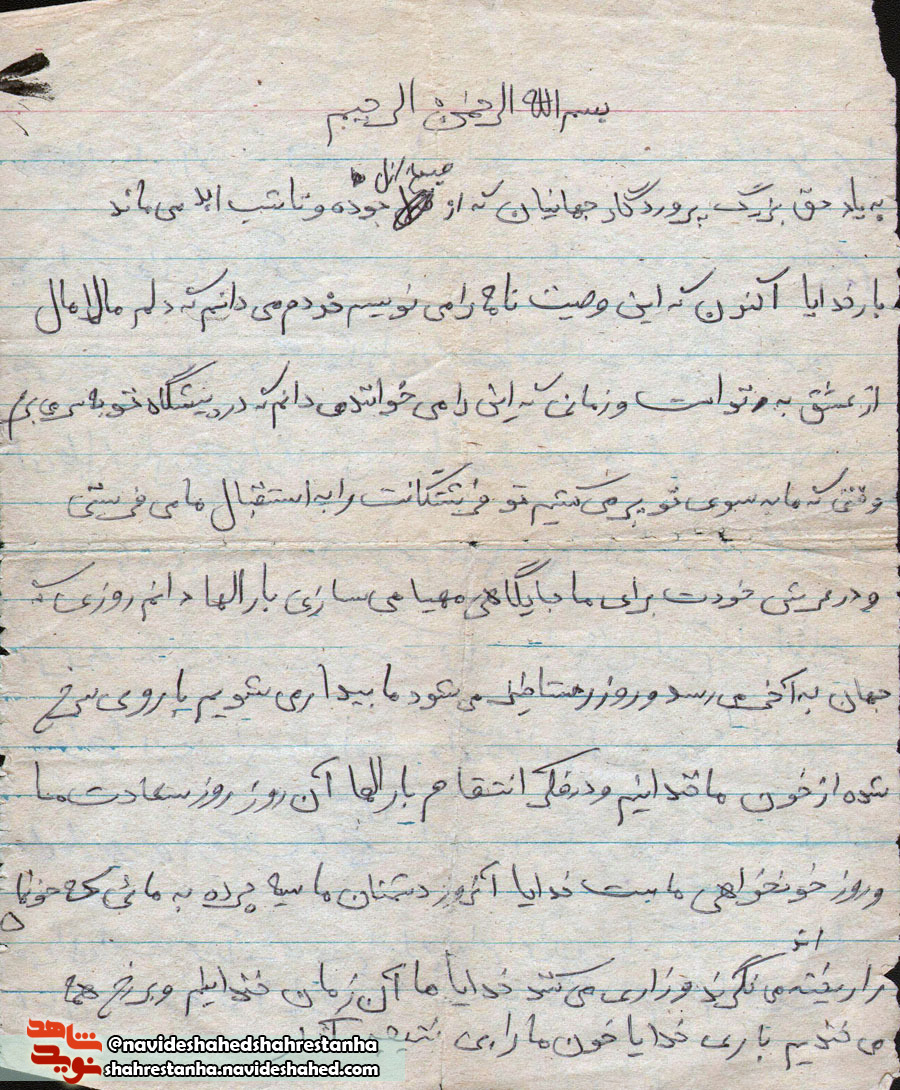 بسم الله الرحمن الرحیم
به یاد حق بزرگ پروردگار جهانیان که از صبح ازل بوده و تا شب ابد می ماند
بار خدایا اکنون که این وصیت نامه را می نویسم خودم می دانم که دلم مالامال
از عشق به تو است و زمانی که این را می خوانند می دانم که در پیشگاه تو به سر می برم
وقتی که ما به سوی تو پر می کشیم تو فرشتگانت را به استقبال ما می فرستی
و در عرش خودت برای ما جایگاهی مهیا می سازی بار الها دانم روزی که
جهان به آخر می رسد و روز رستاخیز می شود ما بیدار می شویم با روی سرخ
شده از خون ما خندانیم و در فکر انتقام بار الها آن روز روز سعادت ما
و روز خونخواهی ماست خدایا آنروز دشمنان ما سیه چرده به مائی که خونما
را ریخته اند می نگرند و زاری می کنند خدایا ما آن زمان خندانیم و بر رخ همه
می خندیم باری خدایا خون ما را بی
شاهد نوید
@navideshahedshahrestanha
shahrestanha.navideshahed.com